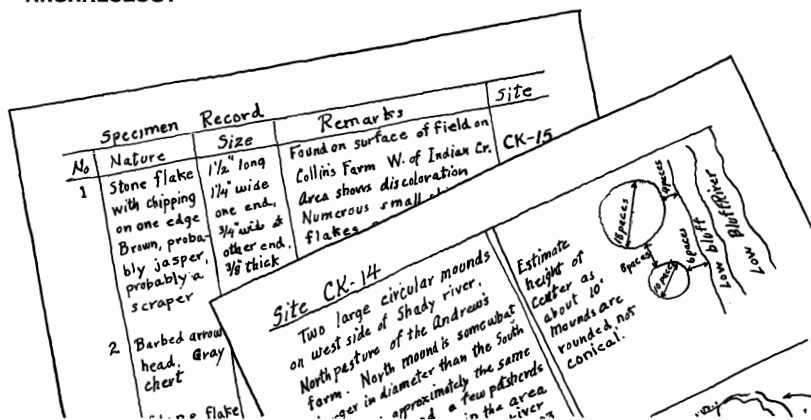 ARCHAEOLOGY
Specimen Record
No Nature Size Remarks Site
1 Stone flake
with chipping
on one edge
Brown, proba-
bly jasper,
probably a
scraper
1½" long
1¼" wide
one end,
¾" wide at
other end,
⅜" thick
Found on surface of field on
Collins Farm W. of Indian Cr.
Area shows discoloration
Numerous small
flakes
CK-15
2 Barbed arrow
head, Gray
chert
flake
Site CK-14
Two large circular mounds
on west side of Shady river,
North pasture of the Andrew's
farm. North mound is somewhat
larger in diameter than the South
approximately the same
a few potsherds
in the area
river
Estimate
height of
center as
about 10'
Mounds are
rounded, not
conical.
18 paces
9 paces
8 paces
10 paces
6 paces
Low bluff
Bluff River
Low